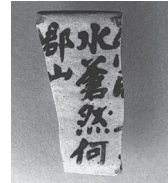 水蒼然何
郡山